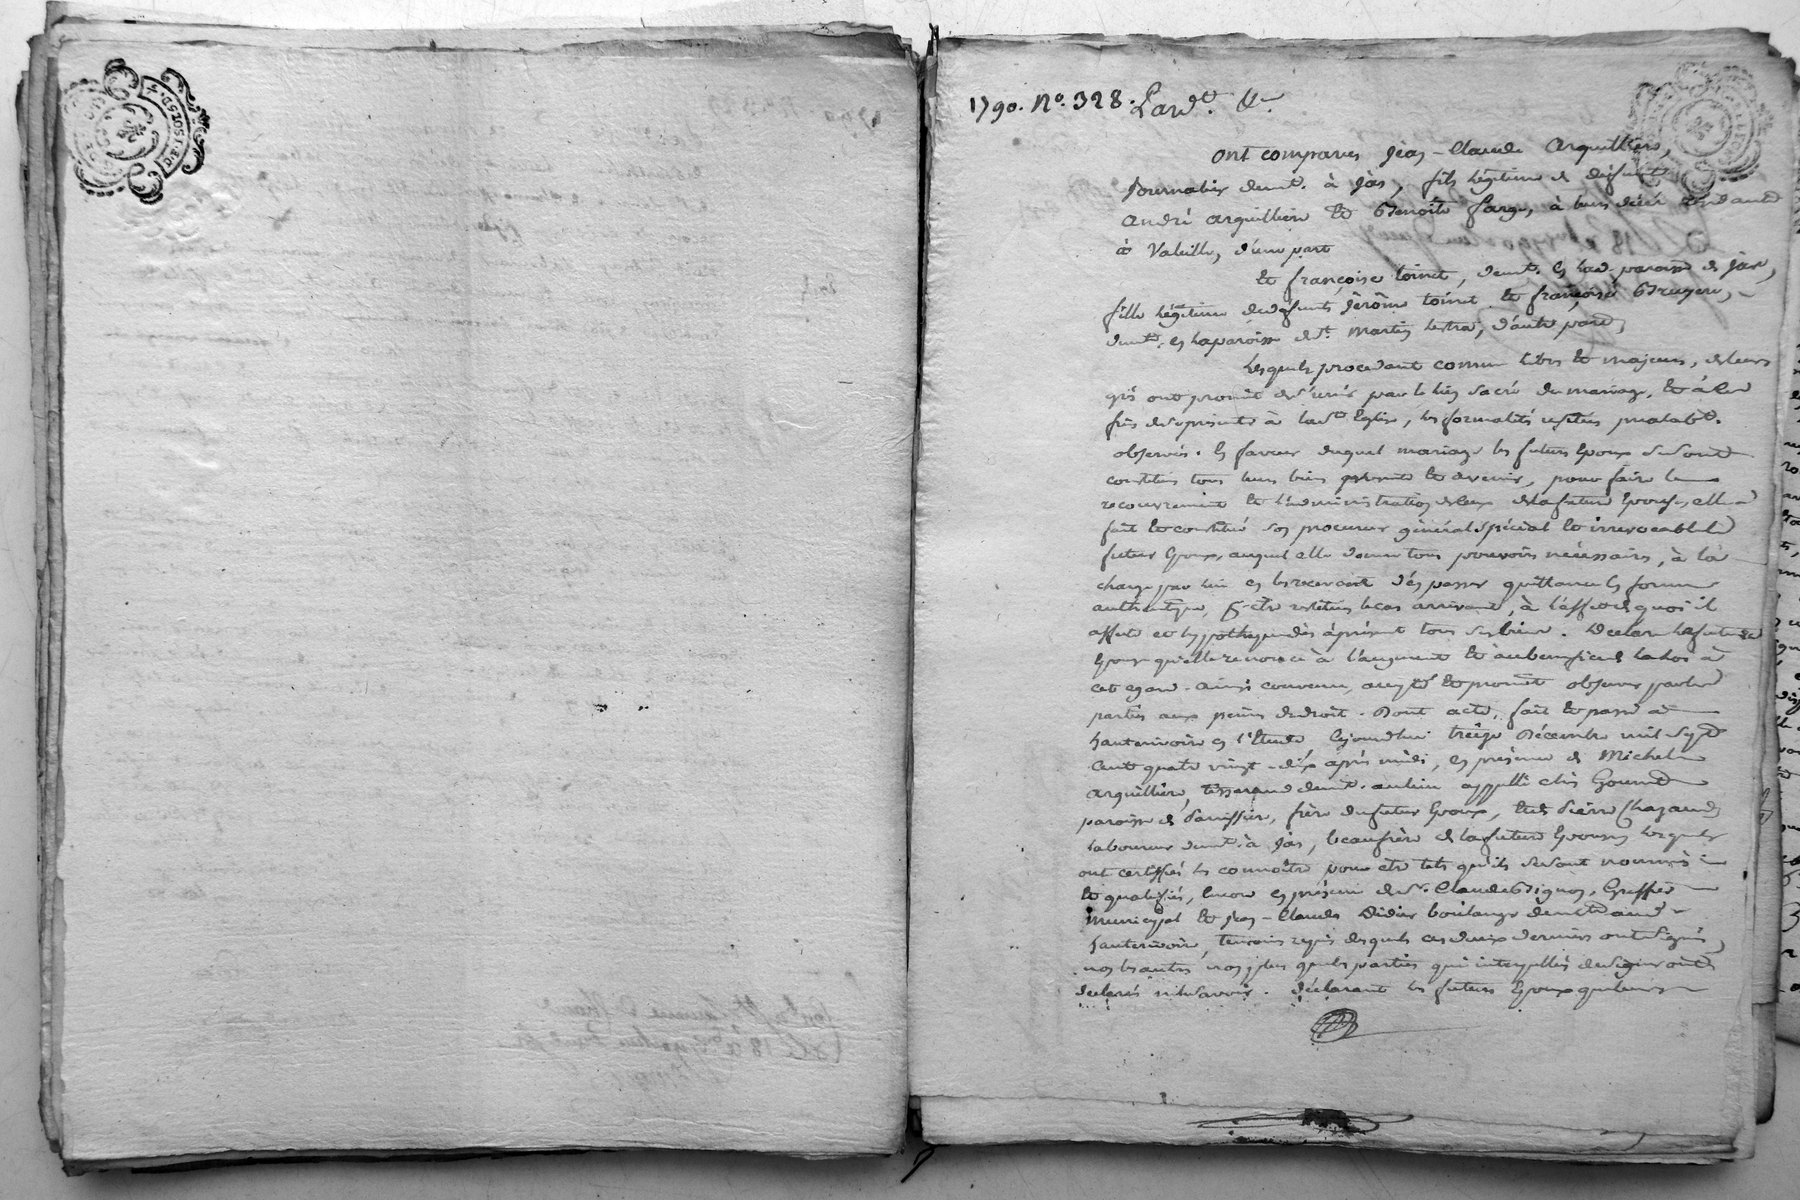 1790. N°. 328. Pard.t &.
ont comparus jean-Claude arquilliere,
journalier demt. à jas, fils légitime de défunts
andré arquilliere et Benoite farge, à leurs décés
à Valeille, d'une part
et françoise toinet, demt. en lad. paroisse de jas,
fille légitime de défunts jèrôme toinet et françoise Bruyere,
demt. en la paroisse de St. martin lestra, d'autre part
lesquels procedant comme libres et majeurs, de leurs
grés ont promit de s'unir par le lien sacré du mariage, et à
de se présenter à Eglise, les formalités préalablt.
observés. En faveur duquel mariage les futurs Epoux se sont
constitués tous leurs biens présents et avenir, pour faire le
recouvrement et l'administration de ceux de la future Epouse, elle a
fait et constitué son procureur général spécial et irrevocable le
futur Epoux, auquel elle donne tous pouvoirs nécessaires, à la
charge par lui en les recevant d'en passer quittance en forme
authentique, être restitués le cas arrivant, à l'effet de quoi il
affecte et hypotheque dès àprésent tous ses biens. Declare la future
Epouse qu'elle renonce à l'augment et au benefice de la loi à
cet egard. ainsi convenu, accepté et promit observer par les
parties aux peines de droit. Dont acte, fait et passé à
hauterivoire en l'Etude cejourdhui treize Décembre mil sept
cent quatre vingt-dix après midi, en présence de Michel
arquilliere, tisserand demt. au lieu appellé chés
paroisse de panissiere, frère du futur Epoux, et de pierre Chazaud
laboureur demt. à jas, beaufrère de la future Epouse, lesquels
ont certiffiés les connoître pour être tels qu'ils se sont nommés
et qualifiés, Encore en présence de Sr. Claude greffier
municipal et jean-Claude Didier boulanger demt. aud.
hauterivoire, temoins requis desquels ces deux derniers ont signés,
non les autres non plus que les parties qui interpellés de signer ont
declarés ne le savoir. déclarant les futurs Epoux que leurs